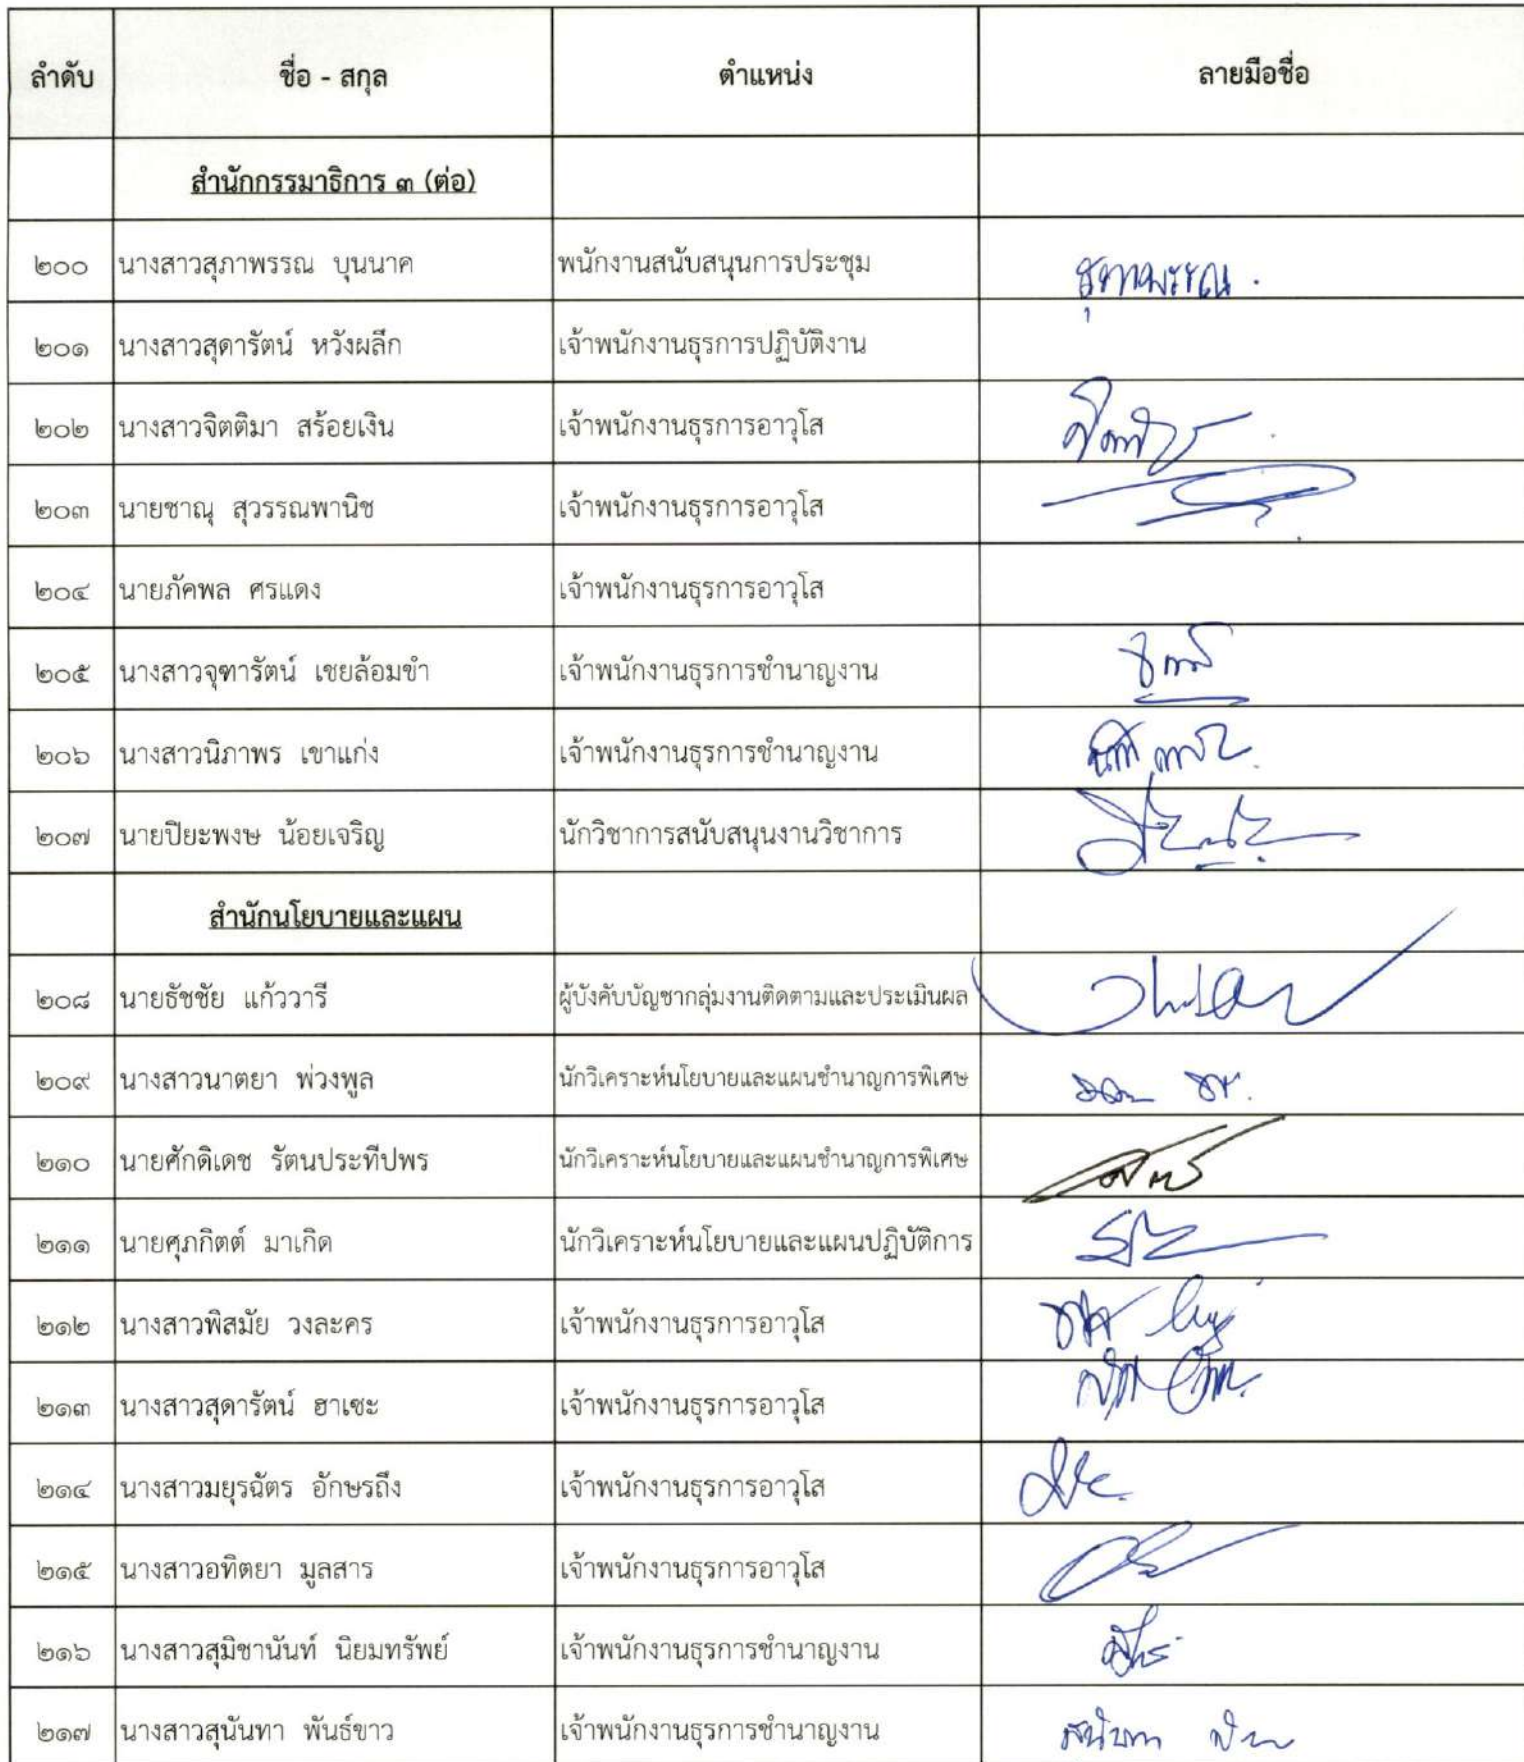 ลำดับ ชื่อ - สกุล ตำแหน่ง ลายมือชื่อ
สำนักกรรมาธิการ ๓ (ต่อ)
๒๐๐ นางสาวสุภาพรรณ บุนนาค พนักงานสนับสนุนการประชุม สุภาพรรณ
๒๐๑ นางสาวสุดารัตน์ หวังผลึก เจ้าพนักงานธุรการปฏิบัติงาน
๒๐๒ นางสาวจิตติมา สร้อยเงิน เจ้าพนักงานธุรการอาวุโส
๒๐๓ นายชาณุ สุวรรณพานิช เจ้าพนักงานธุรการอาวุโส
๒๐๔ นายภัคพล ศรแดง เจ้าพนักงานธุรการอาวุโส
๒๐๕ นางสาวจุฑารัตน์ เชยล้อมขำ เจ้าพนักงานธุรการชำนาญงาน
๒๐๖ นางสาวนิภาพร เขาแก่ง เจ้าพนักงานธุรการชำนาญงาน
๒๐๗ นายปิยะพงษ น้อยเจริญ นักวิชาการสนับสนุนงานวิชาการ
สำนักนโยบายและแผน
๒๐๘ นายธัชชัย แก้ววารี ผู้บังคับบัญชากลุ่มงานติดตามและประเมินผล
๒๐๙ นางสาวนาตยา พ่วงพูล นักวิเคราะห์นโยบายและแผนชำนาญการพิเศษ
๒๑๐ นายศักดิเดช รัตนประทีปพร นักวิเคราะห์นโยบายและแผนชำนาญการพิเศษ
๒๑๑ นายศุภกิตต์ มาเกิด นักวิเคราะห์นโยบายและแผนปฏิบัติการ
๒๑๒ นางสาวพิสมัย วงละคร เจ้าพนักงานธุรการอาวุโส
๒๑๓ นางสาวสุดารัตน์ ฮาเซะ เจ้าพนักงานธุรการอาวุโส
๒๑๔ นางสาวมยุรฉัตร อักษรถึง เจ้าพนักงานธุรการอาวุโส
๒๑๕ นางสาวอทิตยา มูลสาร เจ้าพนักงานธุรการอาวุโส
๒๑๖ นางสาวสุมิชานันท์ นิยมทรัพย์ เจ้าพนักงานธุรการชำนาญงาน
๒๑๗ นางสาวสุนันทา พันธ์ขาว เจ้าพนักงานธุรการชำนาญงาน